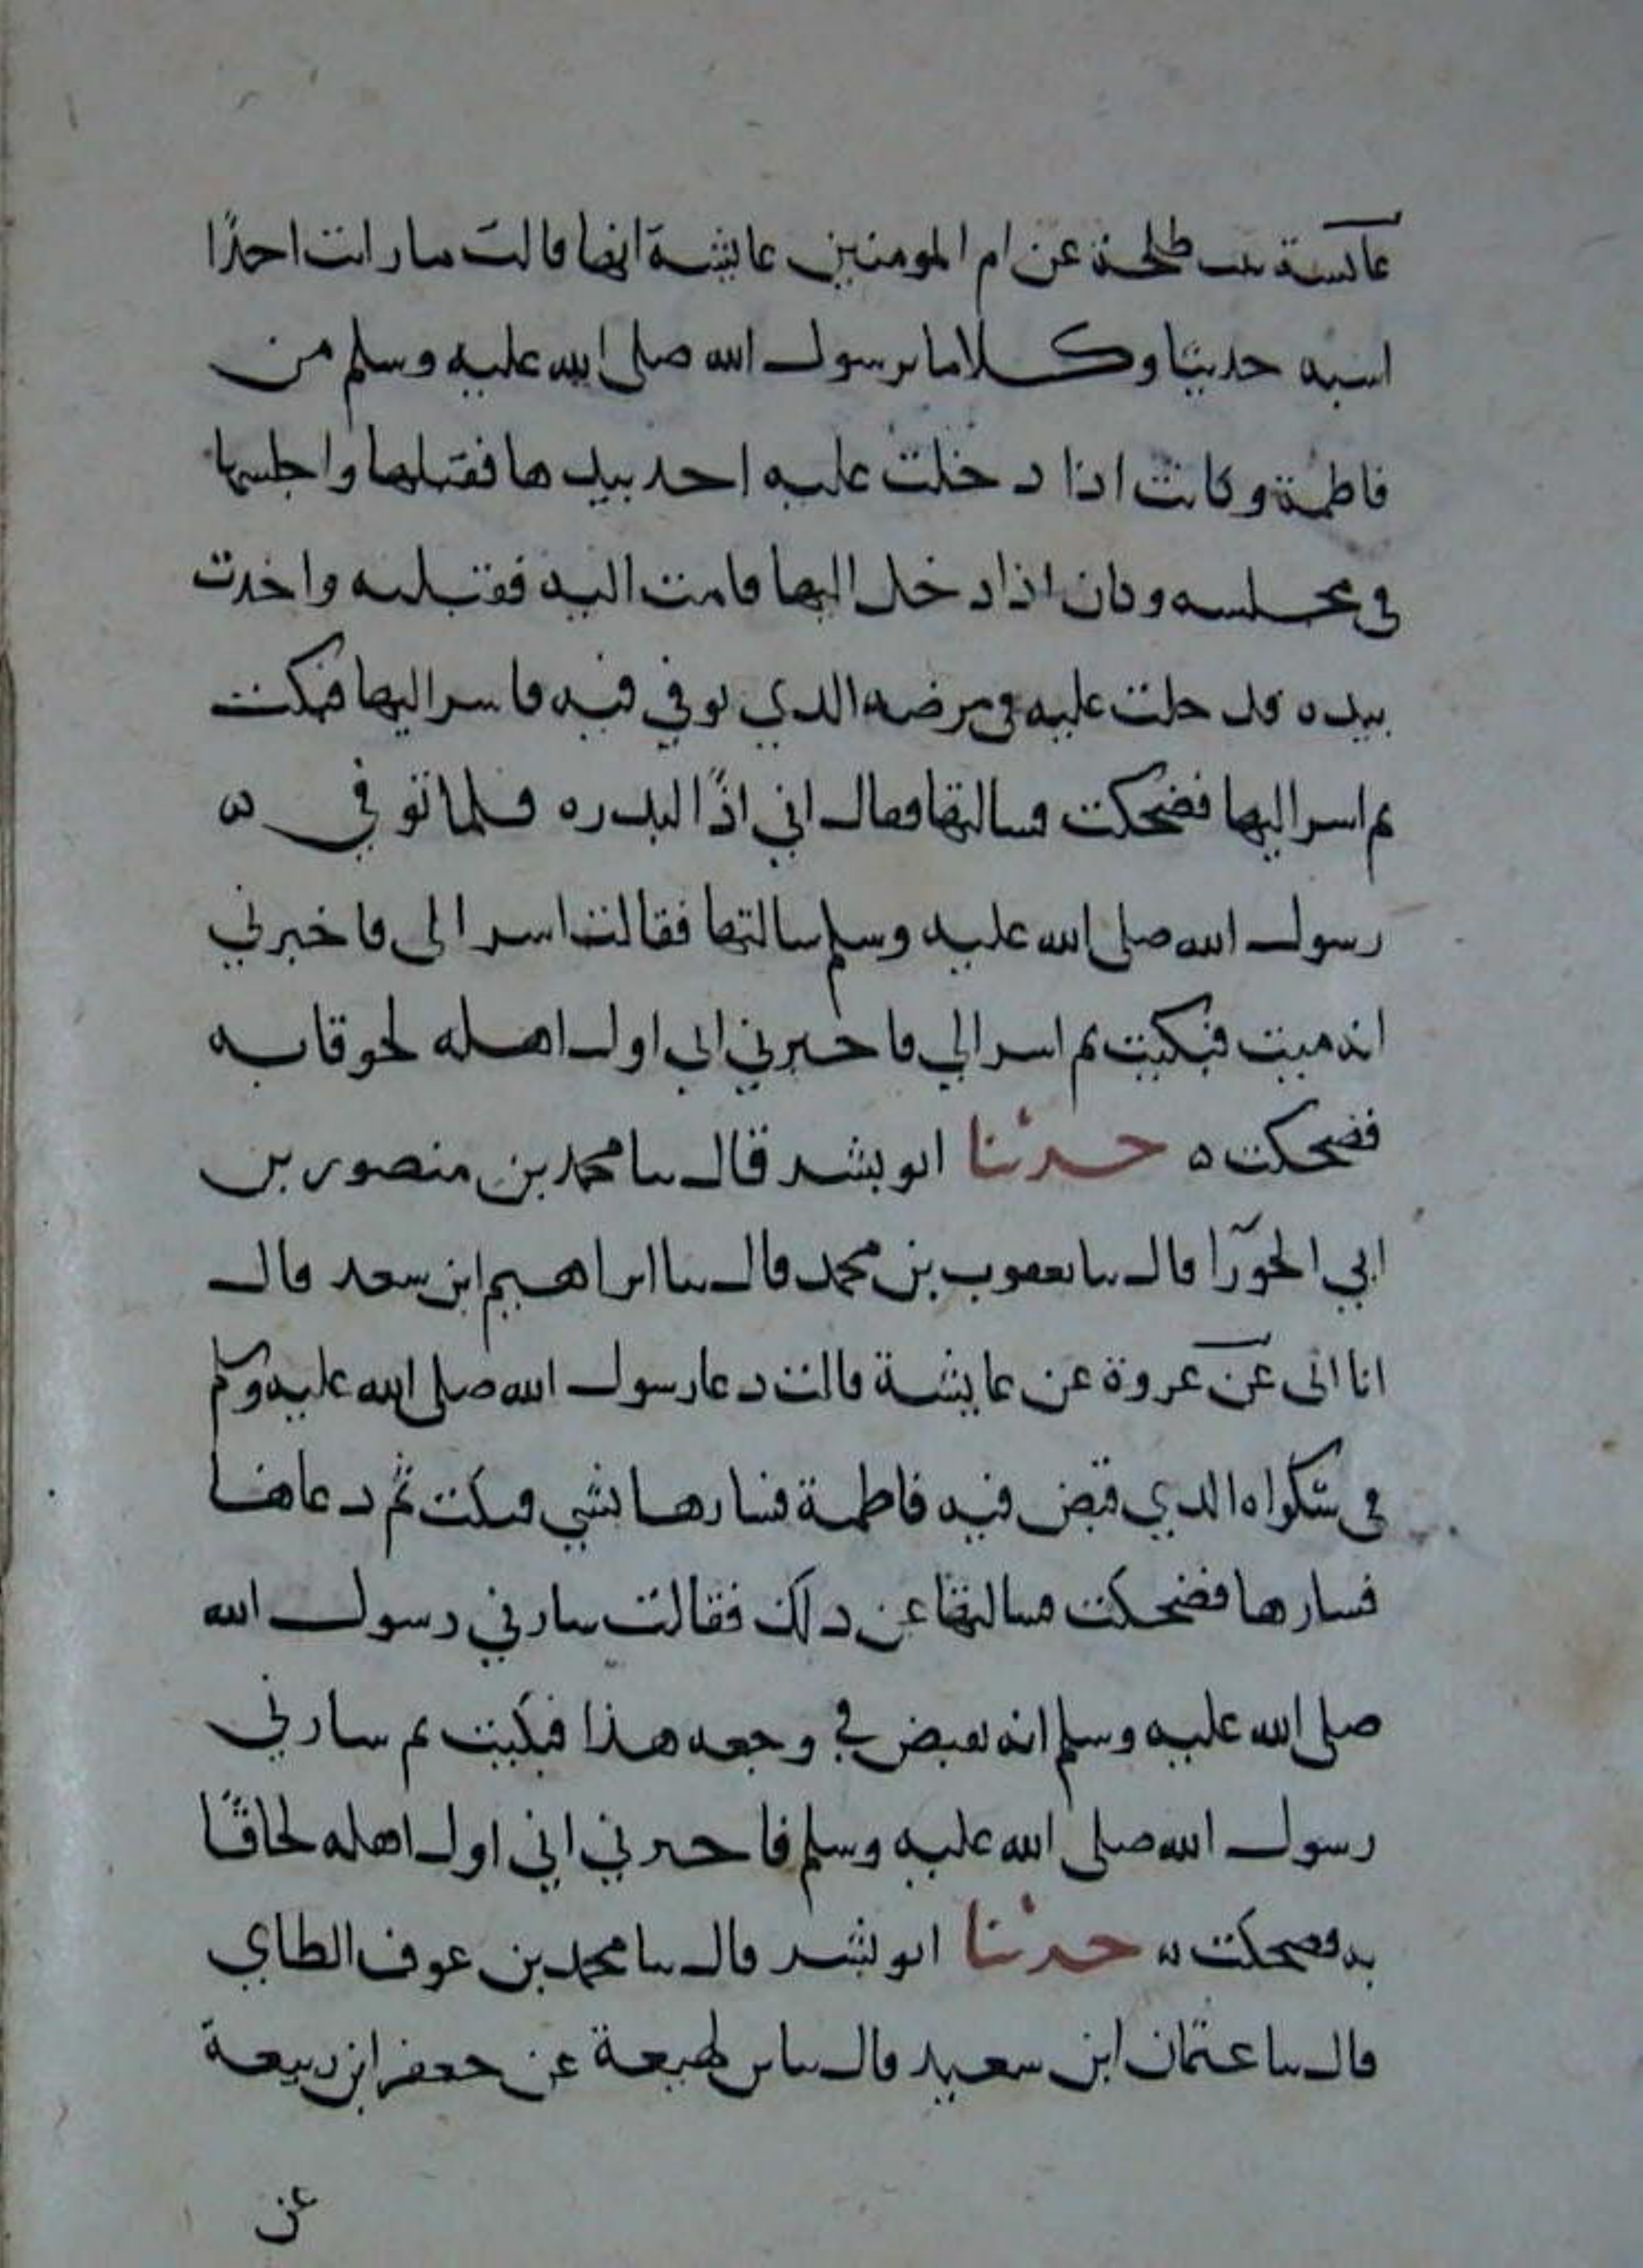 عائشة بنت طلحة عن ام المومنين عايشة انها قالت ما رات احدًا
اشبه حديثا وكلاما برسول الله صلى الله عليه وسلم من
فاطمة وكانت اذا دخلت عليه اخد بيدها فقبلها واجلسها
في مجلسه وكان اذا دخل اليها قامت اليه فقبلته واخدت
بيده فدخلت عليه في مرضه الدي توفي فيه فاسر اليها فبكت
ثم اسر اليها فضحكت فسالتها فقال اني اذًا لبدره فلما توفي ه
رسول الله صلى الله عليه وسلم سالتها فقالت اسر الى فاخبرني
انه ميت فبكيت ثم اسر الي فاخبرني اني اول اهله لحوقا به
فضحكت ه حدثنا ابو بشر قال ثنا محمد بن منصور بن
ابي الحورا قال ثنا يعقوب بن محمد قال ثنا ابراهيم ابن سعد قال
انا ابى عن عروة عن عايشة قالت دعا رسول الله صلى الله عليه وسلم
في شكواه الدي قبض فيه فاطمة فسارها بشي فبكت ثم دعاها
فسارها فضحكت فسالتها عن دلك فقالت سارني رسول الله
صلى الله عليه وسلم انه يقبض في وجعه هذا فبكيت ثم سارني
رسول الله صلى الله عليه وسلم فاخبرني اني اول اهله لحاقًا
به فضحكت ه حدثنا ابو بشر قال ثنا محمد بن عوف الطاي
قال ثنا عثمان ابن سعيد قال ثنا بن لهيعة عن جعفر ابن ربيعة
عن